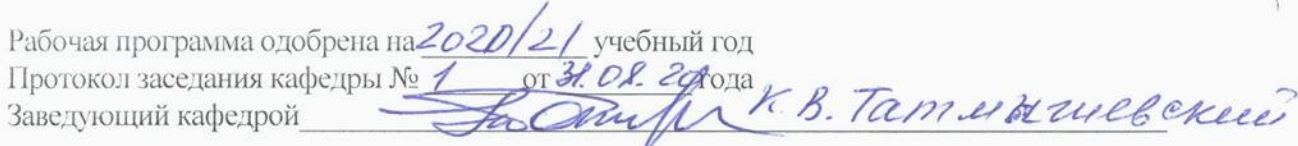 Рабочая программа одобрена на 2020/21 учебный год
Протокол заседания кафедры № 1 от 31.08.20 года
Заведующий кафедрой К.В. Татмышевский